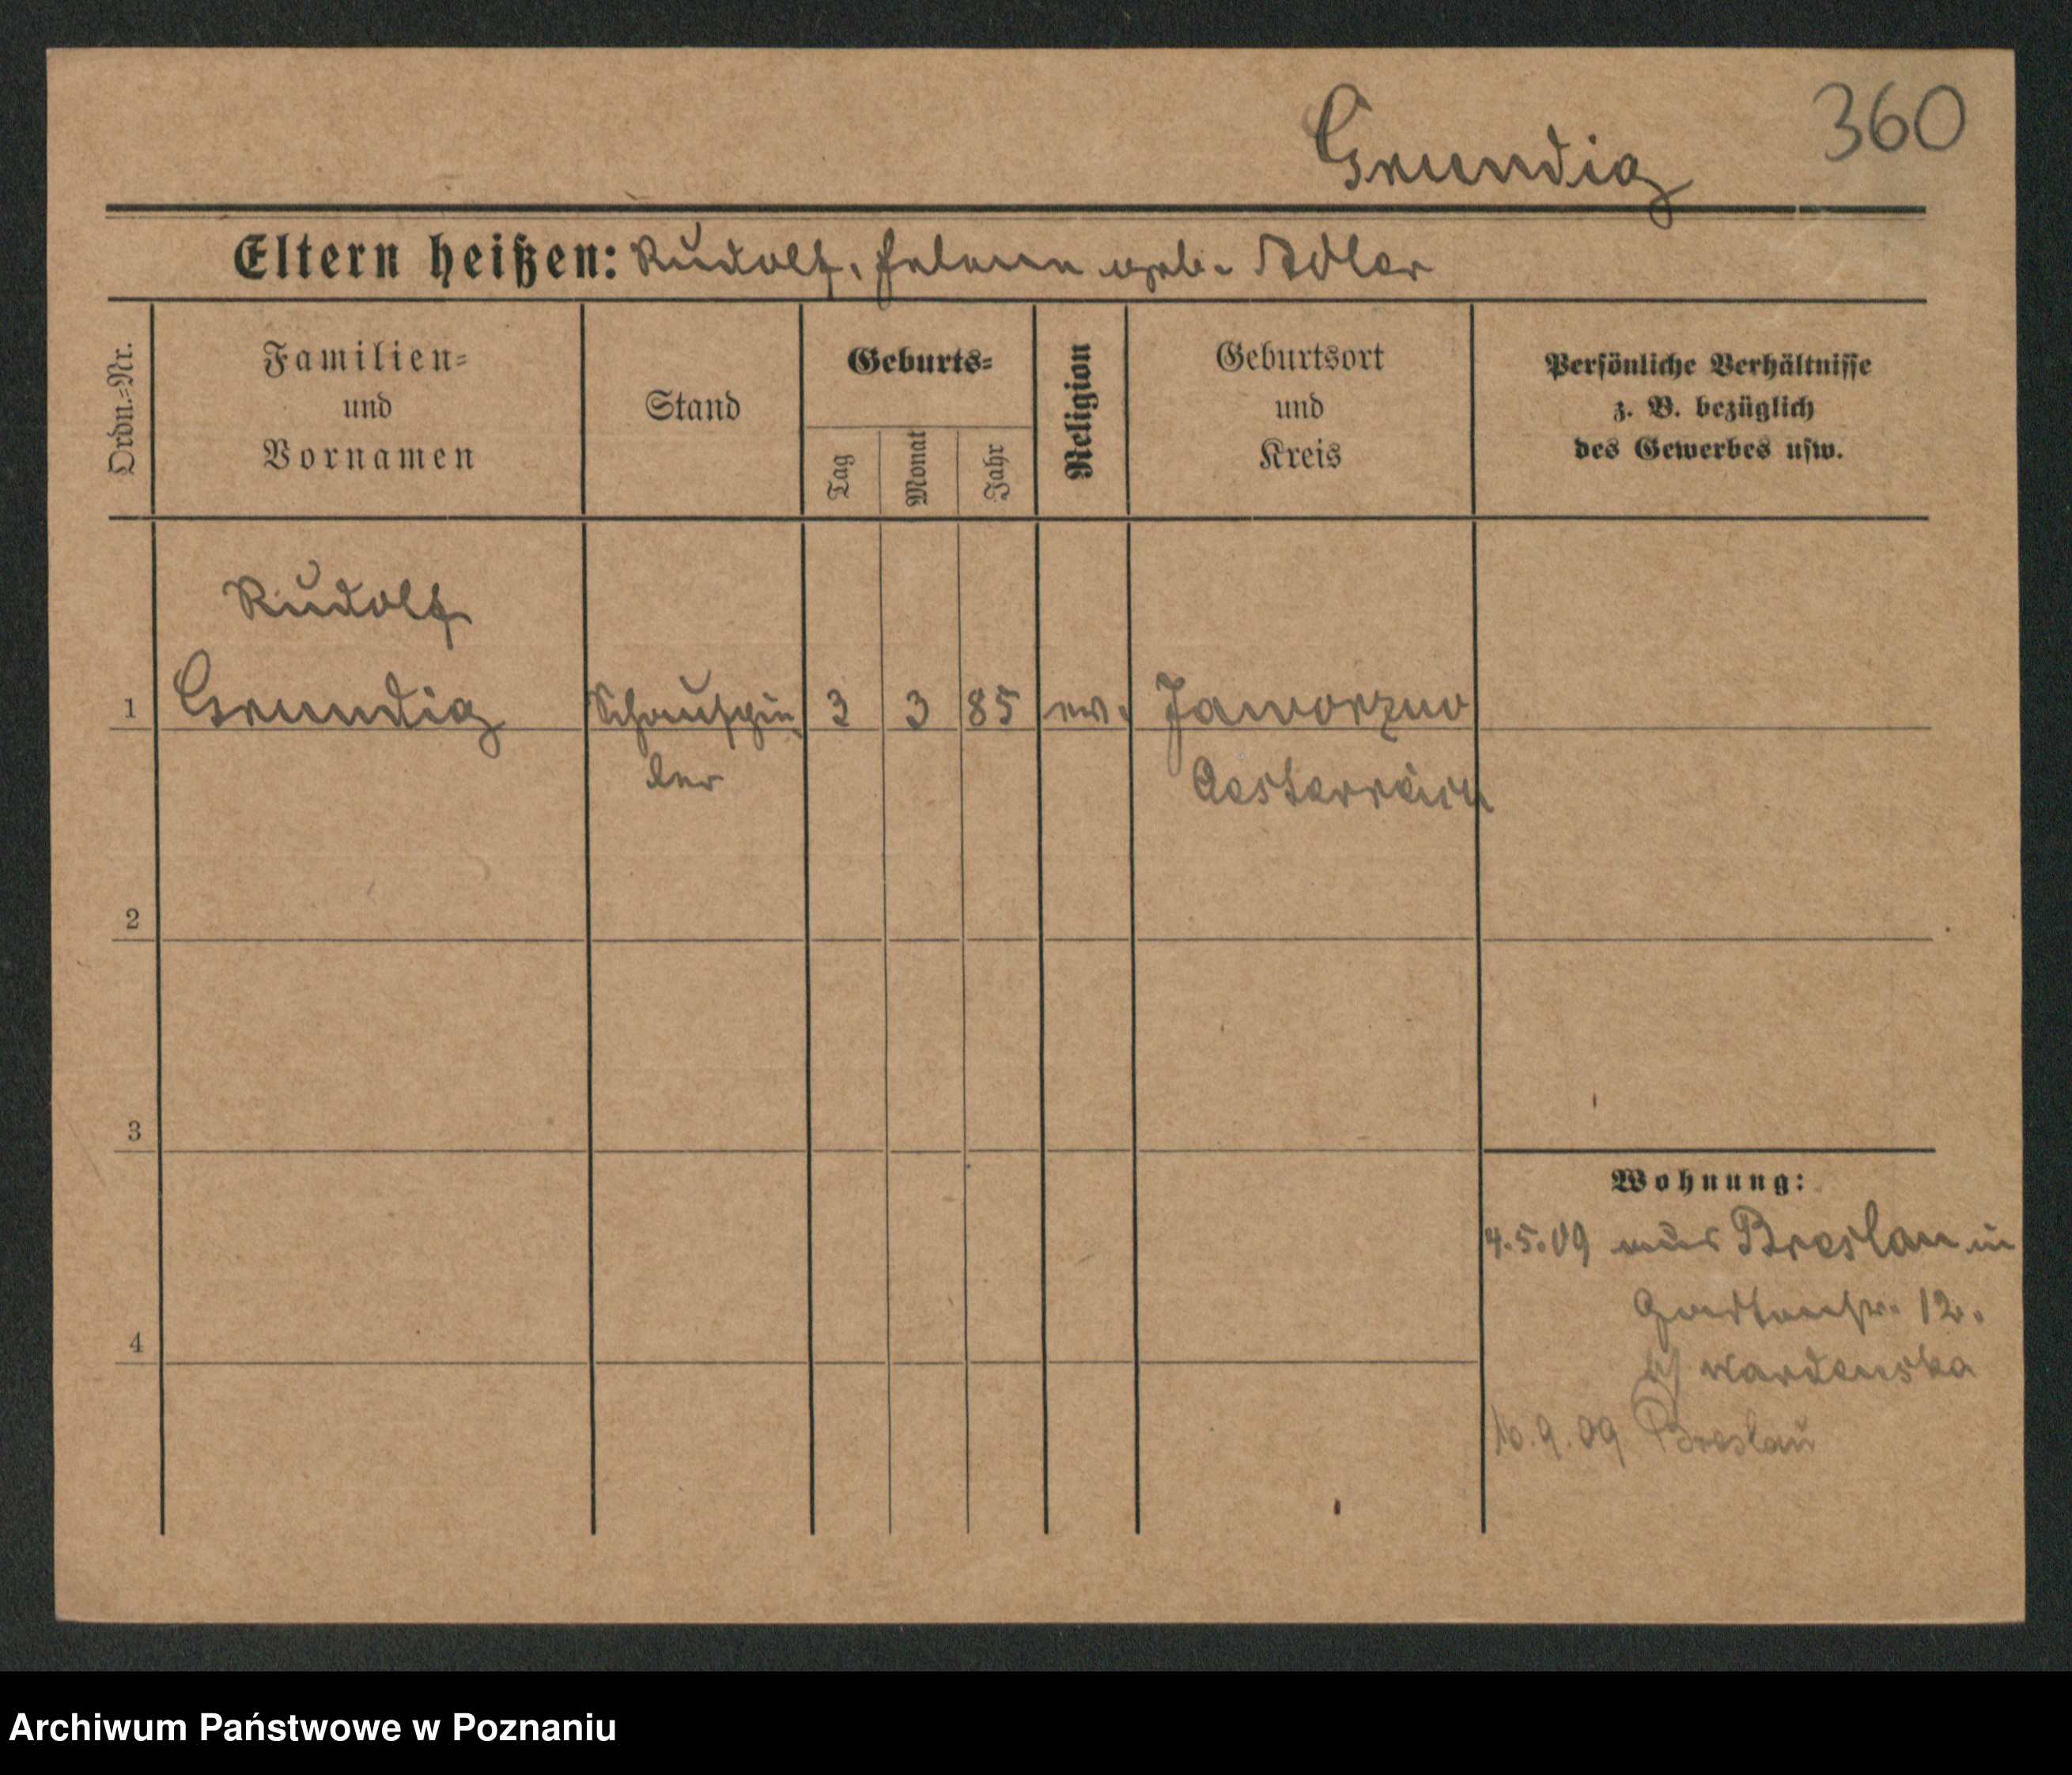 Grundig
360
Eltern heißen: Rudolf, Helene geb. Adler
Ordn.-Nr.
Familien-
und
Vornamen
Stand
Geburts-
Tag
Monat
Jahr
Religion
Geburtsort
und
Kreis
Persönliche Verhältnisse
z. B. bezüglich
des Gewerbes usw.
Rudolf
1 Grundig Schauspie 3 3 85 ev. Jaworzno
ler Oesterreich
2
3
4
Wohnung:
4.5.09 aus Breslau in
12.
b/ Wardenska
16.9.09 Breslau
Archiwum Państwowe w Poznaniu